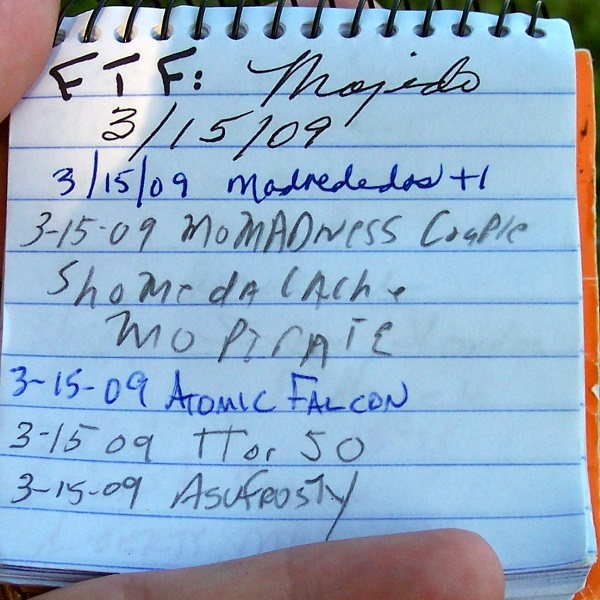 FTF: Mojedo
3/15/09
3/15/09 Madrededos +1
3-15-09 MOMADNESS Couple
Shomedacache
MO PIRATE
3-15-09 ATOMIC FALCON
3-15 09 TTor 50
3-15-09 ASUFROSTY